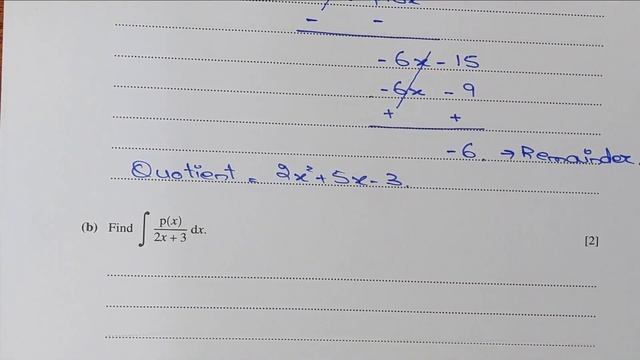 - -
- 6x - 15
- 6x - 9
+ +
- 6. → Remainder.
Quotient = 2x² + 5x - 3.
(b) Find ∫ p(x)/(2x + 3) dx.
[2]